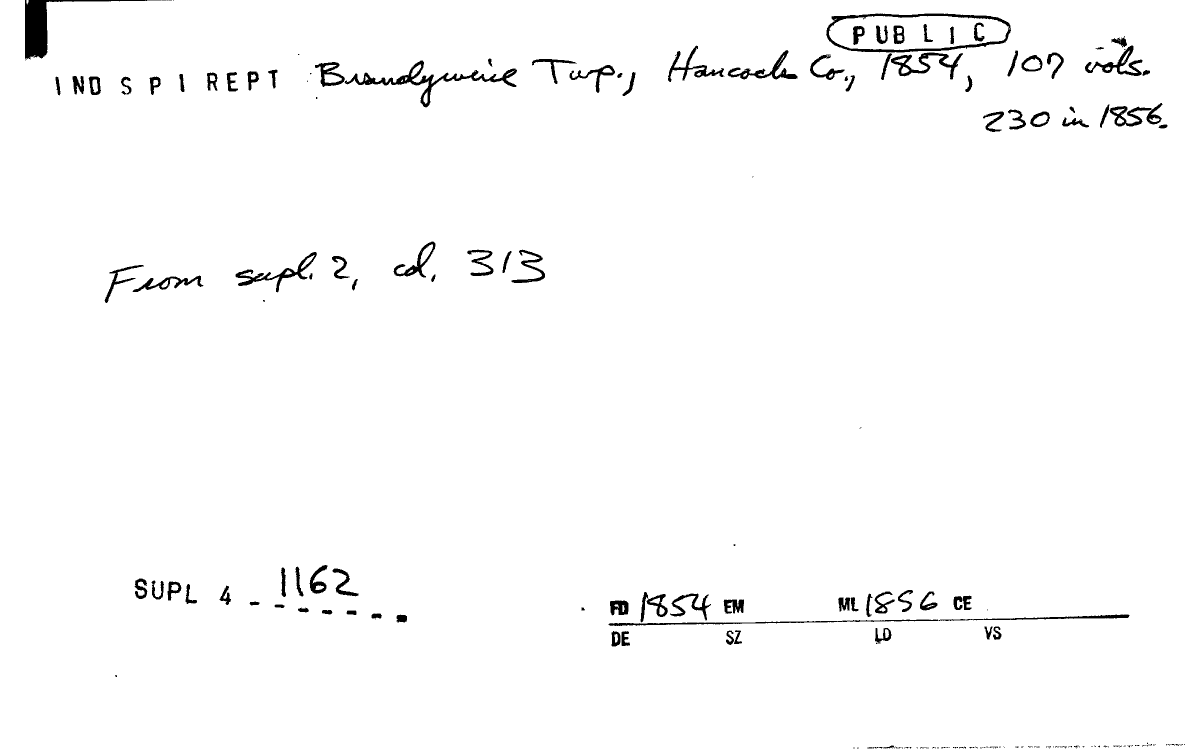 PUBLIC
IND SPI REPT Brandywine Twp., Hancock Co., 1854, 107 vols.
230 in 1856.
From supl. 2, col. 313
SUPL 4 - 1162
FD 1854 EM ML 1856 CE
DE SZ LD VS